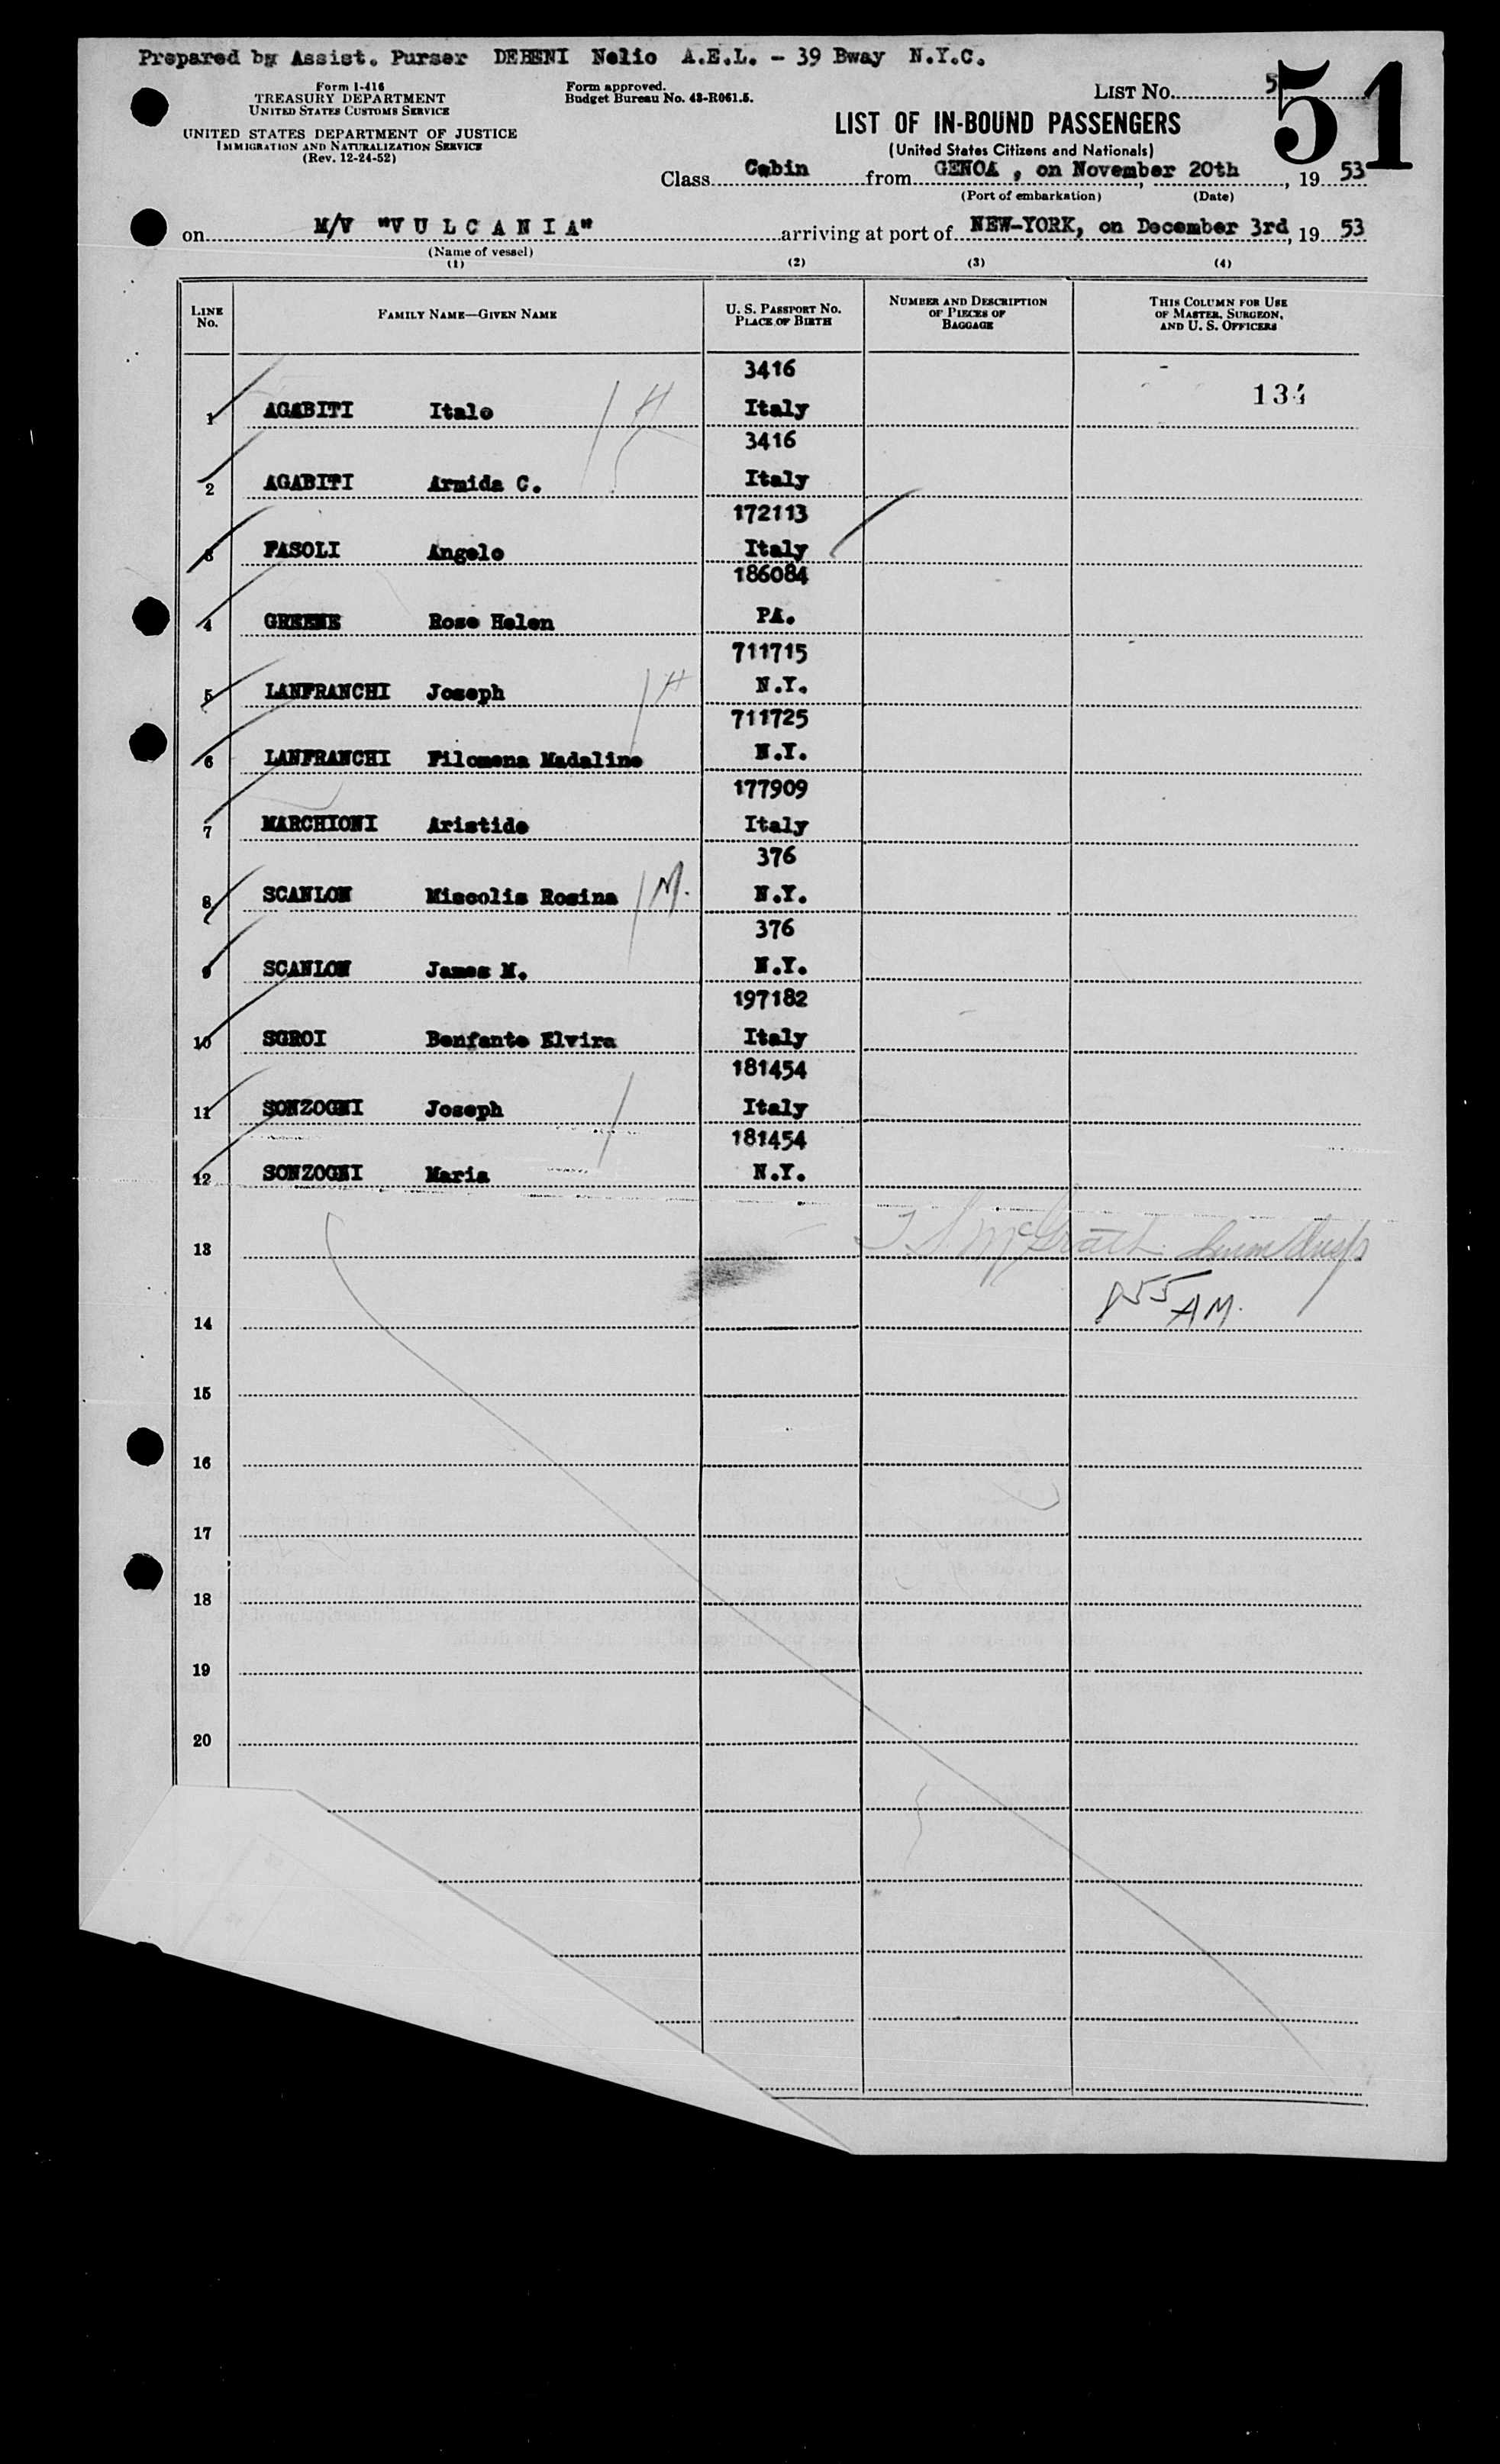 Prepared by Assist. Purser DEBENI Nelio A.E.L. - 39 Bway N.Y.C.
Form I-416
TREASURY DEPARTMENT
UNITED STATES CUSTOMS SERVICE
UNITED STATES DEPARTMENT OF JUSTICE
IMMIGRATION AND NATURALIZATION SERVICE
(Rev. 12-24-52)
Form approved.
Budget Bureau No. 43-R061.5.
LIST No. 5
51
LIST OF IN-BOUND PASSENGERS
(United States Citizens and Nationals)
Class Cabin from GENOA, on November 20th, 19 53
(Port of embarkation) (Date)
on M/V "VULCANIA" arriving at port of NEW-YORK, on December 3rd, 19 53
(Name of vessel)
(1) (2) (3) (4)
LINE No. FAMILY NAME—GIVEN NAME U. S. PASSPORT No. PLACE OF BIRTH NUMBER AND DESCRIPTION OF PIECES OF BAGGAGE THIS COLUMN FOR USE OF MASTER, SURGEON, AND U. S. OFFICERS
3416
134
1 AGABITI Italo Italy
H
3416
2 AGABITI Armida C. Italy
172113
3 FASOLI Angelo Italy
186084
4 GREENE Rose Helen PA.
711715
5 LANFRANCHI Joseph H N.Y.
711725
6 LANFRANCHI Filomena Madaline N.Y.
177909
7 MARCHIONI Aristide Italy
376
8 SCANLON Miscolis Rosina M. N.Y.
376
9 SCANLON James M. N.Y.
197182
10 SGROI Benfante Elvira Italy
181454
11 SONZOGNI Joseph Italy
181454
12 SONZOGNI Maria N.Y.
13 McGrath
855 AM.
14
15
16
17
18
19
20